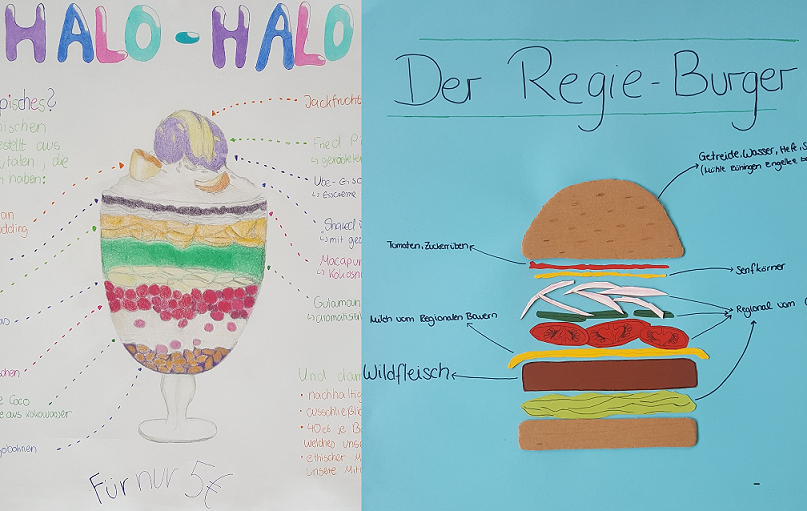 HALO-HALO
pisches?
nischen
estellt aus
utaten, die
n haben:
an
udding
Coco
e aus Kokowasser
gobohnen
Jackfrucht
Fried
Ube-Eis
Eiscreme
Shaved
mit
Macapun
Kokosn
Gulaman
Und dam
nachhaltig
ausschließl
40ct je B
welches uns
ethischer M
unsere Mit
Für nur 5€
Der Regie-Burger
Getreide, Wasser, Hefe, S
Tomaten, Zuckerrüben
Senfkörner
Milch vom Regionalen Bauern
Regional vom
Wildfleisch